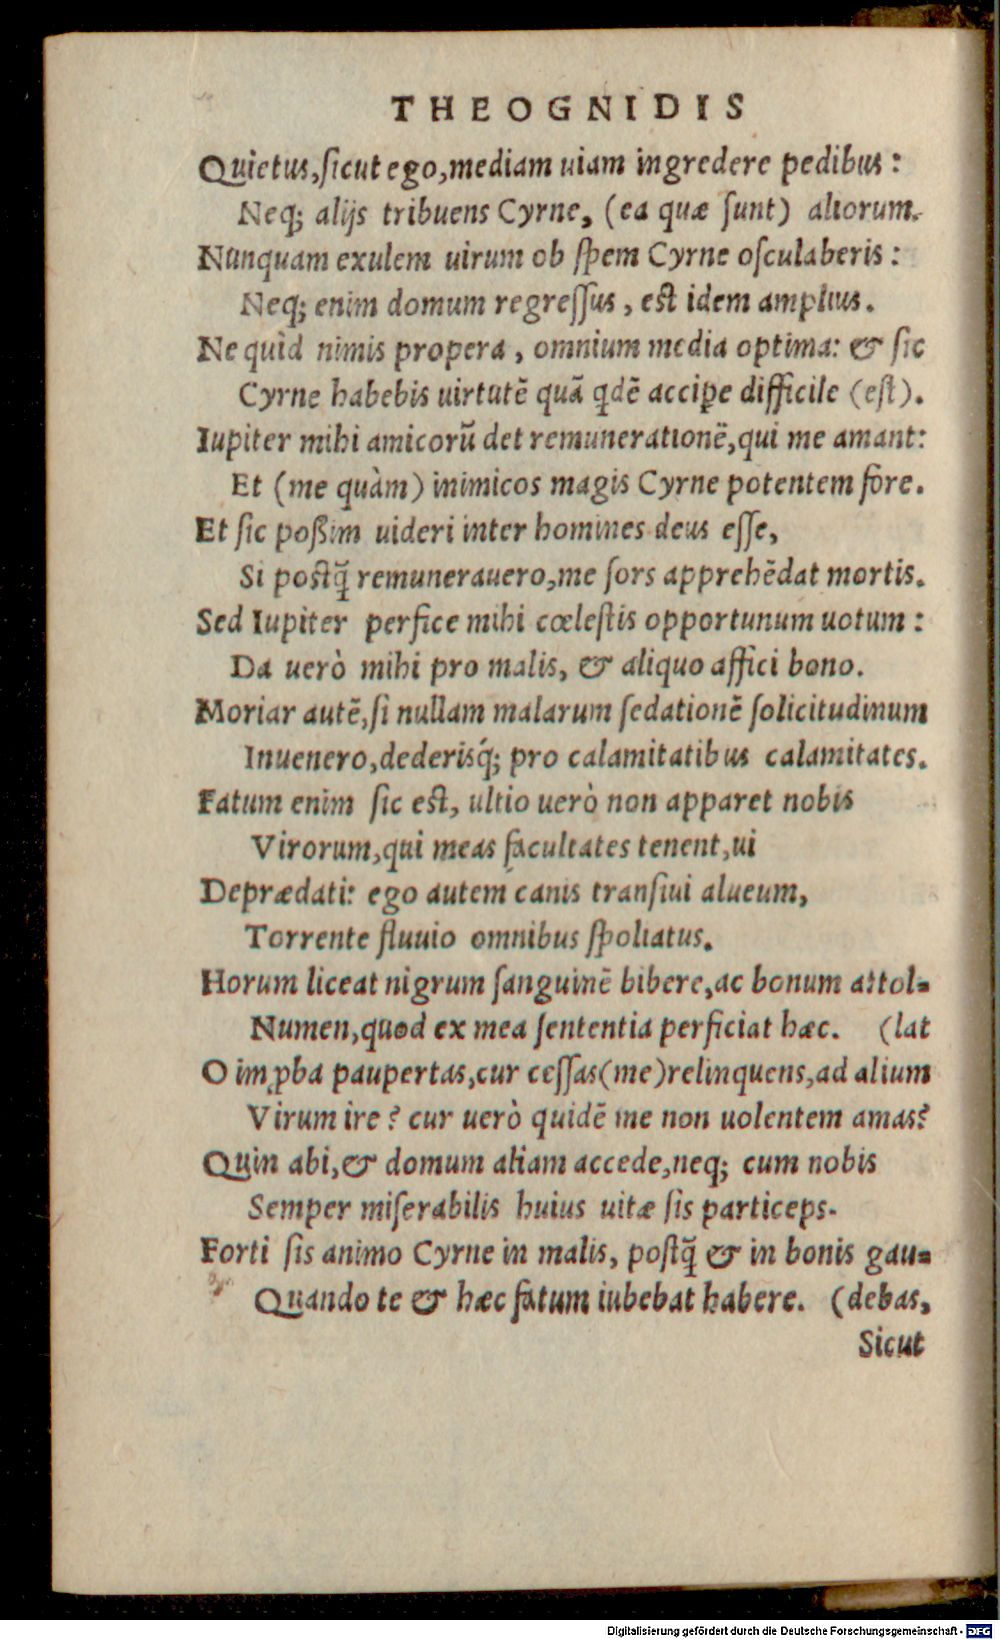 THEOGNIDIS
Quietus,ſicut ego,mediam uiam ingredere pedibus:
Neq; alijs tribuens Cyrne, (ea quæ ſunt) aliorum.
Nunquam exulem uirum ob ſpem Cyrne oſculaberis:
Neq; enim domum regreſſus, est idem amplius.
Ne quid nimis propera, omnium media optima: & ſic
Cyrne habebis uirtutẽ quã qdẽ accipe difficile (eſt).
Iupiter mihi amicorũ det remunerationẽ,qui me amant:
Et (me quàm) inimicos magis Cyrne potentem fore.
Et ſic poßim uideri inter homines deus eſſe,
Si postq̃ remunerauero,me ſors apprehẽdat mortis.
Sed Iupiter perfice mihi cœleſtis opportunum uotum:
Da uerò mihi pro malis, & aliquo affici bono.
Moriar autẽ,ſi nullam malarum ſedationẽ ſolicitudinum
Inuenero,dederisq́; pro calamitatibus calamitates.
Fatum enim ſic est, ultio uerò non apparet nobis
Virorum,qui meas facultates tenent,ui
Deprædati: ego autem canis transiui alueum,
Torrente fluuio omnibus ſpoliatus.
Horum liceat nigrum ſanguinẽ bibere,ac bonum attol-
Numen,quod ex mea ſententia perficiat hæc. (lat
O imꝓba paupertas,cur ceſſas(me)relinquens,ad alium
Virum ire? cur uerò quidẽ me non uolentem amas?
Quin abi,& domum aliam accede,neq; cum nobis
Semper miſerabilis huius uitæ ſis particeps.
Forti ſis animo Cyrne in malis, poſtq̃ & in bonis gau-
Quando te & hæc fatum iubebat habere. (debas,
Sicut
Digitalisierung gefördert durch die Deutsche Forschungsgemeinschaft - DFG